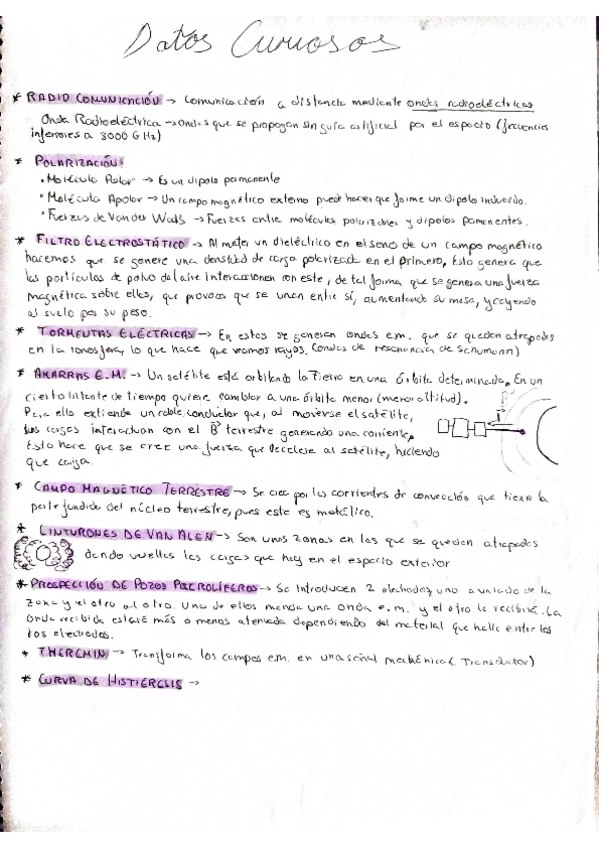 Datos Curiosos
* RADIO COMUNICACIÓN → Comunicación a distancia mediante ondas radioeléctricas
Onda Radioeléctrica → Ondas que se propagan sin guía artificial por el espacio (frecuencias
inferiores a 3000 GHz)
* POLARIZACIÓN:
• Molécula Polar → Es un dipolo permanente
• Molécula Apolar → Un campo magnético externo puede hacer que forme un dipolo inducido.
• Fuerzas de Van der Walls → Fuerzas entre moléculas polarizables y dipolos permanentes.
* FILTRO ELECTROSTÁTICO → Al meter un dieléctrico en el seno de un campo magnético
hacemos que se genere una densidad de carga polarizada en el primero, Esto genera que
las partículas de polvo del aire interaccionen con este, de tal forma que se genera una fuerza
magnética sobre ellas, que provoca que se unan entre sí, aumentando su masa, y cayendo
al suelo por su peso.
* TORMENTAS ELÉCTRICAS → En estas se generan ondas e.m. que se quedan atrapadas
en la ionosfera, lo que hace que veamos rayos. (ondas de resonancia de Schumann)
* AMARRAS E.M. → Un satélite está orbitando la Tierra en una órbita determinada. En un
cierto instante de tiempo quiere cambiar a una órbita menor (menor altitud).
Para ello extiende un cable conductor que, al moverse el satélite,
sus cargas interactuan con el B terrestre generando una corriente.
Esto hace que se cree una fuerza que decelere al satélite, haciendo
que caiga.
* CAMPO MAGNÉTICO TERRESTRE → Se crea por las corrientes de convección que tiene la
parte fundida del núcleo terrestre, pues este es metálico.
* CINTURONES DE VAN ALEN → Son unas zonas en las que se quedan atrapadas
dando vueltas las cargas que hay en el espacio exterior
* PROSPECCIÓN DE POZOS PETROLÍFEROS → Se introducen 2 electrodos, uno a un lado de la
zona y el otro al otro. Uno de ellos manda una onda e.m. y el otro la recibirá. La
onda recibida estará más o menos atenuada dependiendo del material que halle entre los
dos electrodos.
* THEREMIN → Transforma los campos e.m. en una señal mecánica (Transductor)
* CURVA DE HISTIERESIS →